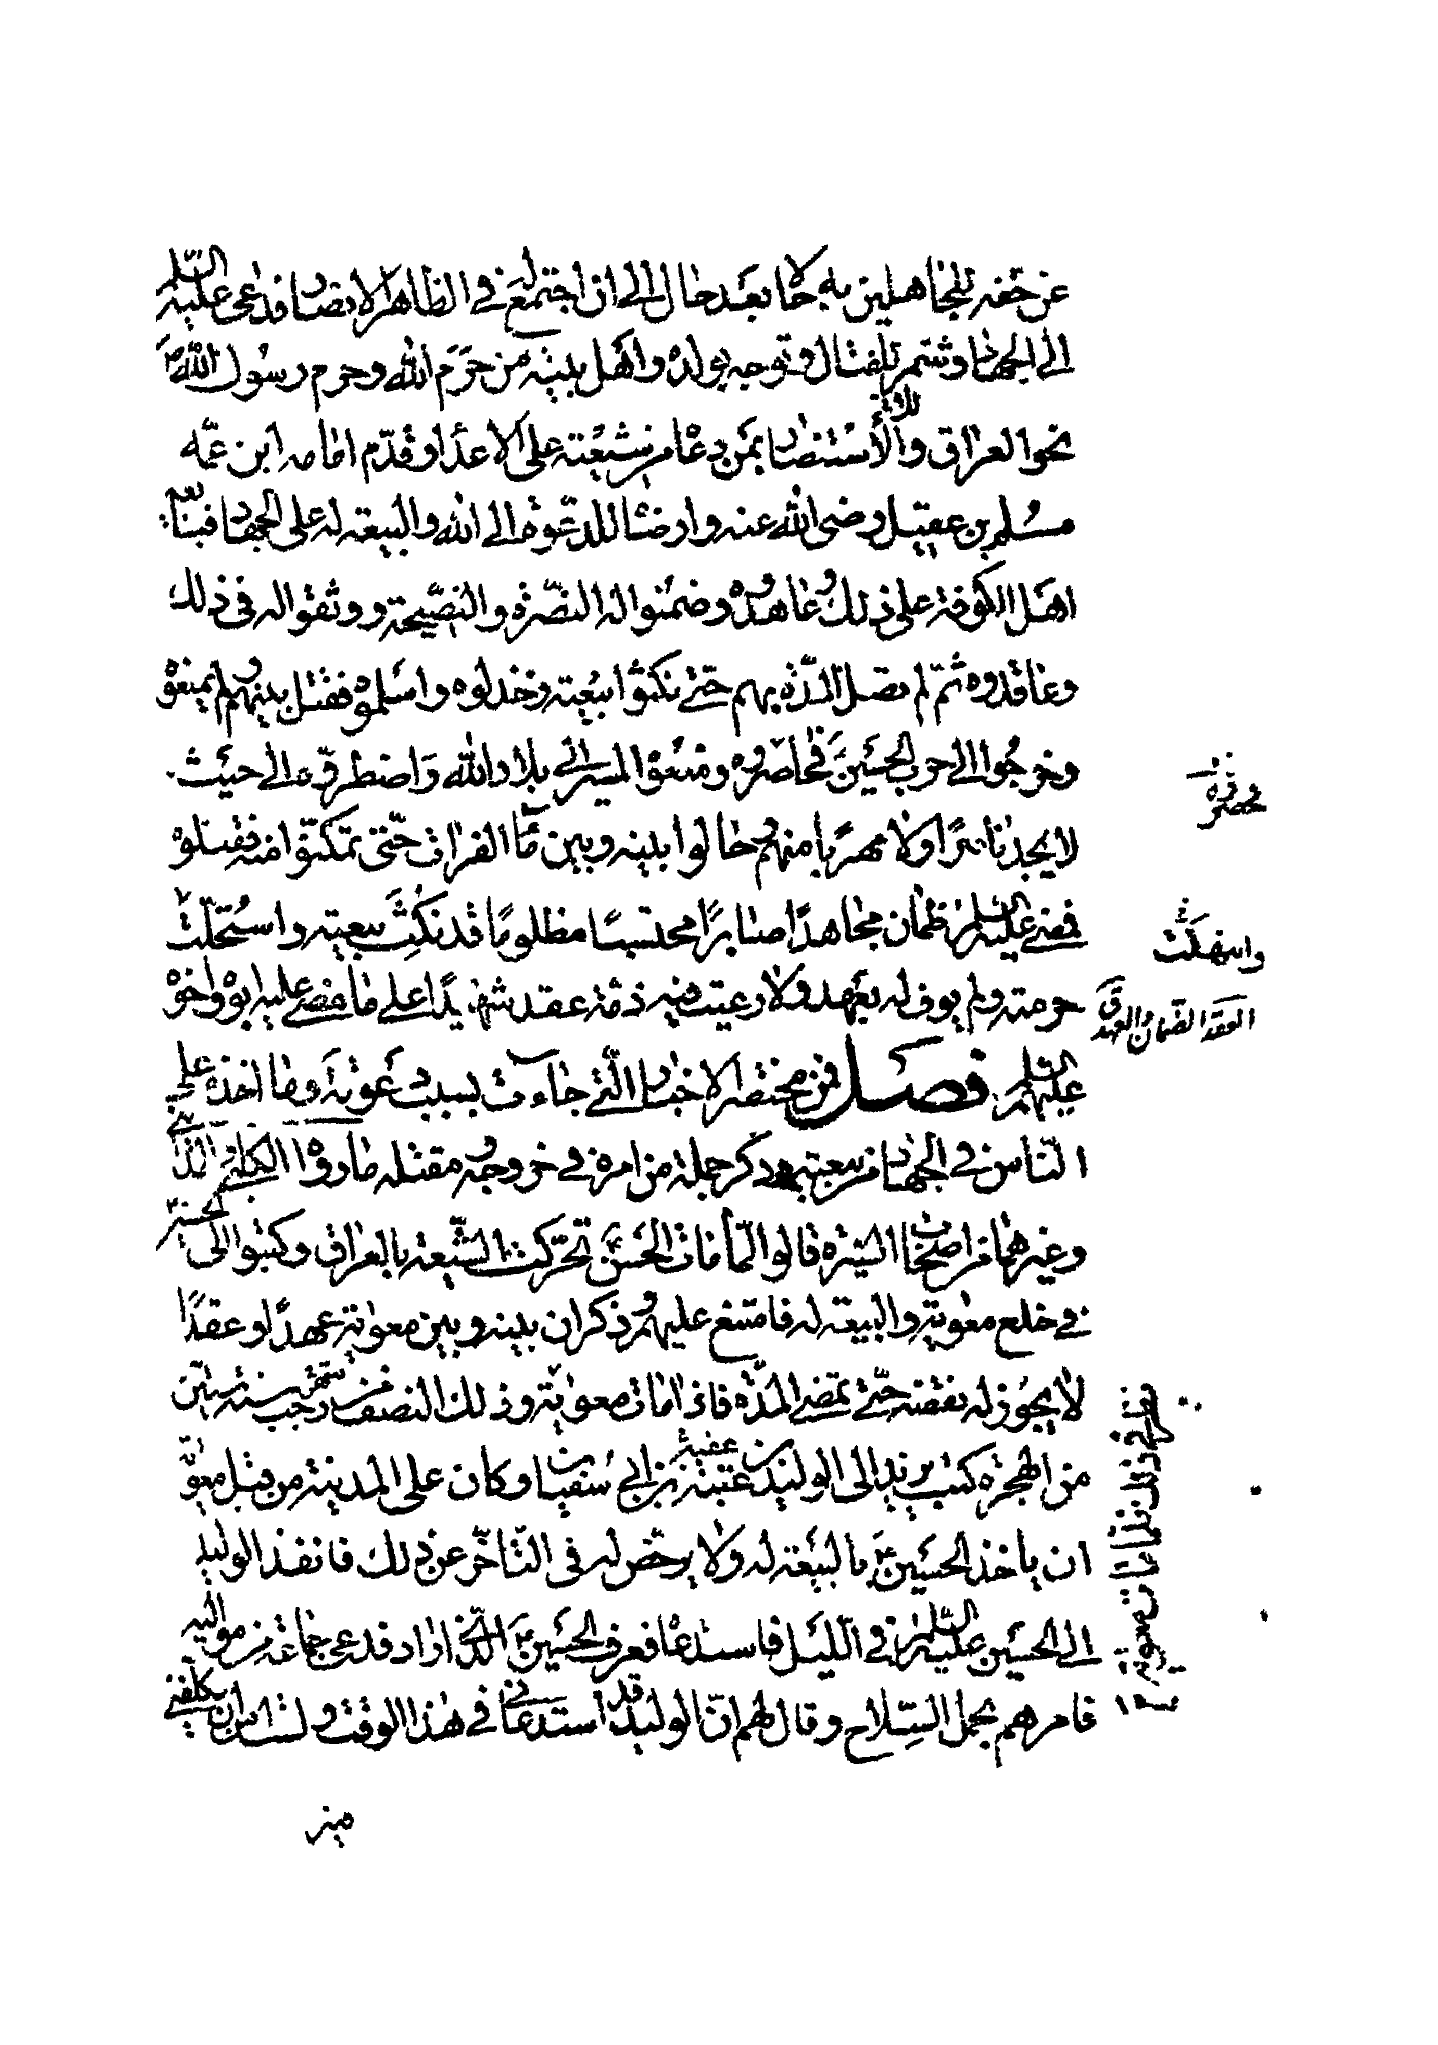 عن حقه للجاهلين به حالا بعد حال الى ان اجتمع له في الظاهر الانصار فدعى عليه السلم
الى الجهاد وشمر للقتال وتوجه بولده واهل بيته من حرم الله وحرم رسول الله ص
نحو العراق والأستنصار بمن دعاه من شيعته على الاعداء وقدم امامه ابن عمه
مسلم بن عقيل رضى الله عنه وارضاه للدعوة الى الله والبيعة له على الجهاد فبايعه
اهل الكوفة على ذلك وعاهدوه وضمنوا له النصرة والنصيحة ووثقوا له في ذلك
وعاقدوه ثم لم تطل المدة بهم حتى نكثوا بيعته وخذلوه واسلموه فقتل بينهم ولم يمنعوه
وخرجوا الى حرب الحسين ع فحاصروه ومنعوه المسير الى بلاد الله واضطروه الى حيث
لا يجد ناصرا ولا مهربا منهم وحالوا بينه وبين ماء الفرات حتى تمكنوا منه فقتلوه
فمضى عليه السلم ظمان مجاهدا صابرا محتسبا مظلوما قد نكثت بيعته واستحلت
حرمته ولم يوف له بعهد ولا رعيت فيه ذمة عقد شهيدا على ما مضى عليه ابوه واخوه
عليهم السلم فصل فمن مختصر الاخبار التي جاءت بسبب دعوته وما اخذه على
الناس في الجهاد من بيعته وذكر جملة من امره في خروجه ومقتله ما رواه الكلبي والمدائني
وغيرهما من اصحاب السيرة قالوا لما مات الحسن ع تحركت الشيعة بالعراق وكتبوا الى الحسين
في خلع معوية والبيعة له فامتنع عليهم وذكر ان بينه وبين معوية عهدا وعقدا
لا يجوز له نقضه حتى تمضى المدة فاذا مات معوية وذلك النصف من رجب سنة ستين
من الهجرة كتب يزيد الى الوليد بن عتبة بن ابي سفيان وكان على المدينة من قبل معوية
ان ياخذ الحسين ع بالبيعة له ولا يرخص له في التاخر عن ذلك فانفذ الوليد
الى الحسين عليه السلم في الليل فاستدعاه فعرف الحسين ع الذي اراد فدعى جماعة من مواليه
فامرهم بحمل السلاح وقال لهم ان الوليد قد استدعاني في هذا الوقت ولست امن ان يكلفني
العقد الضمان والعهد ق
نظر في ذلك فلما مات معوية